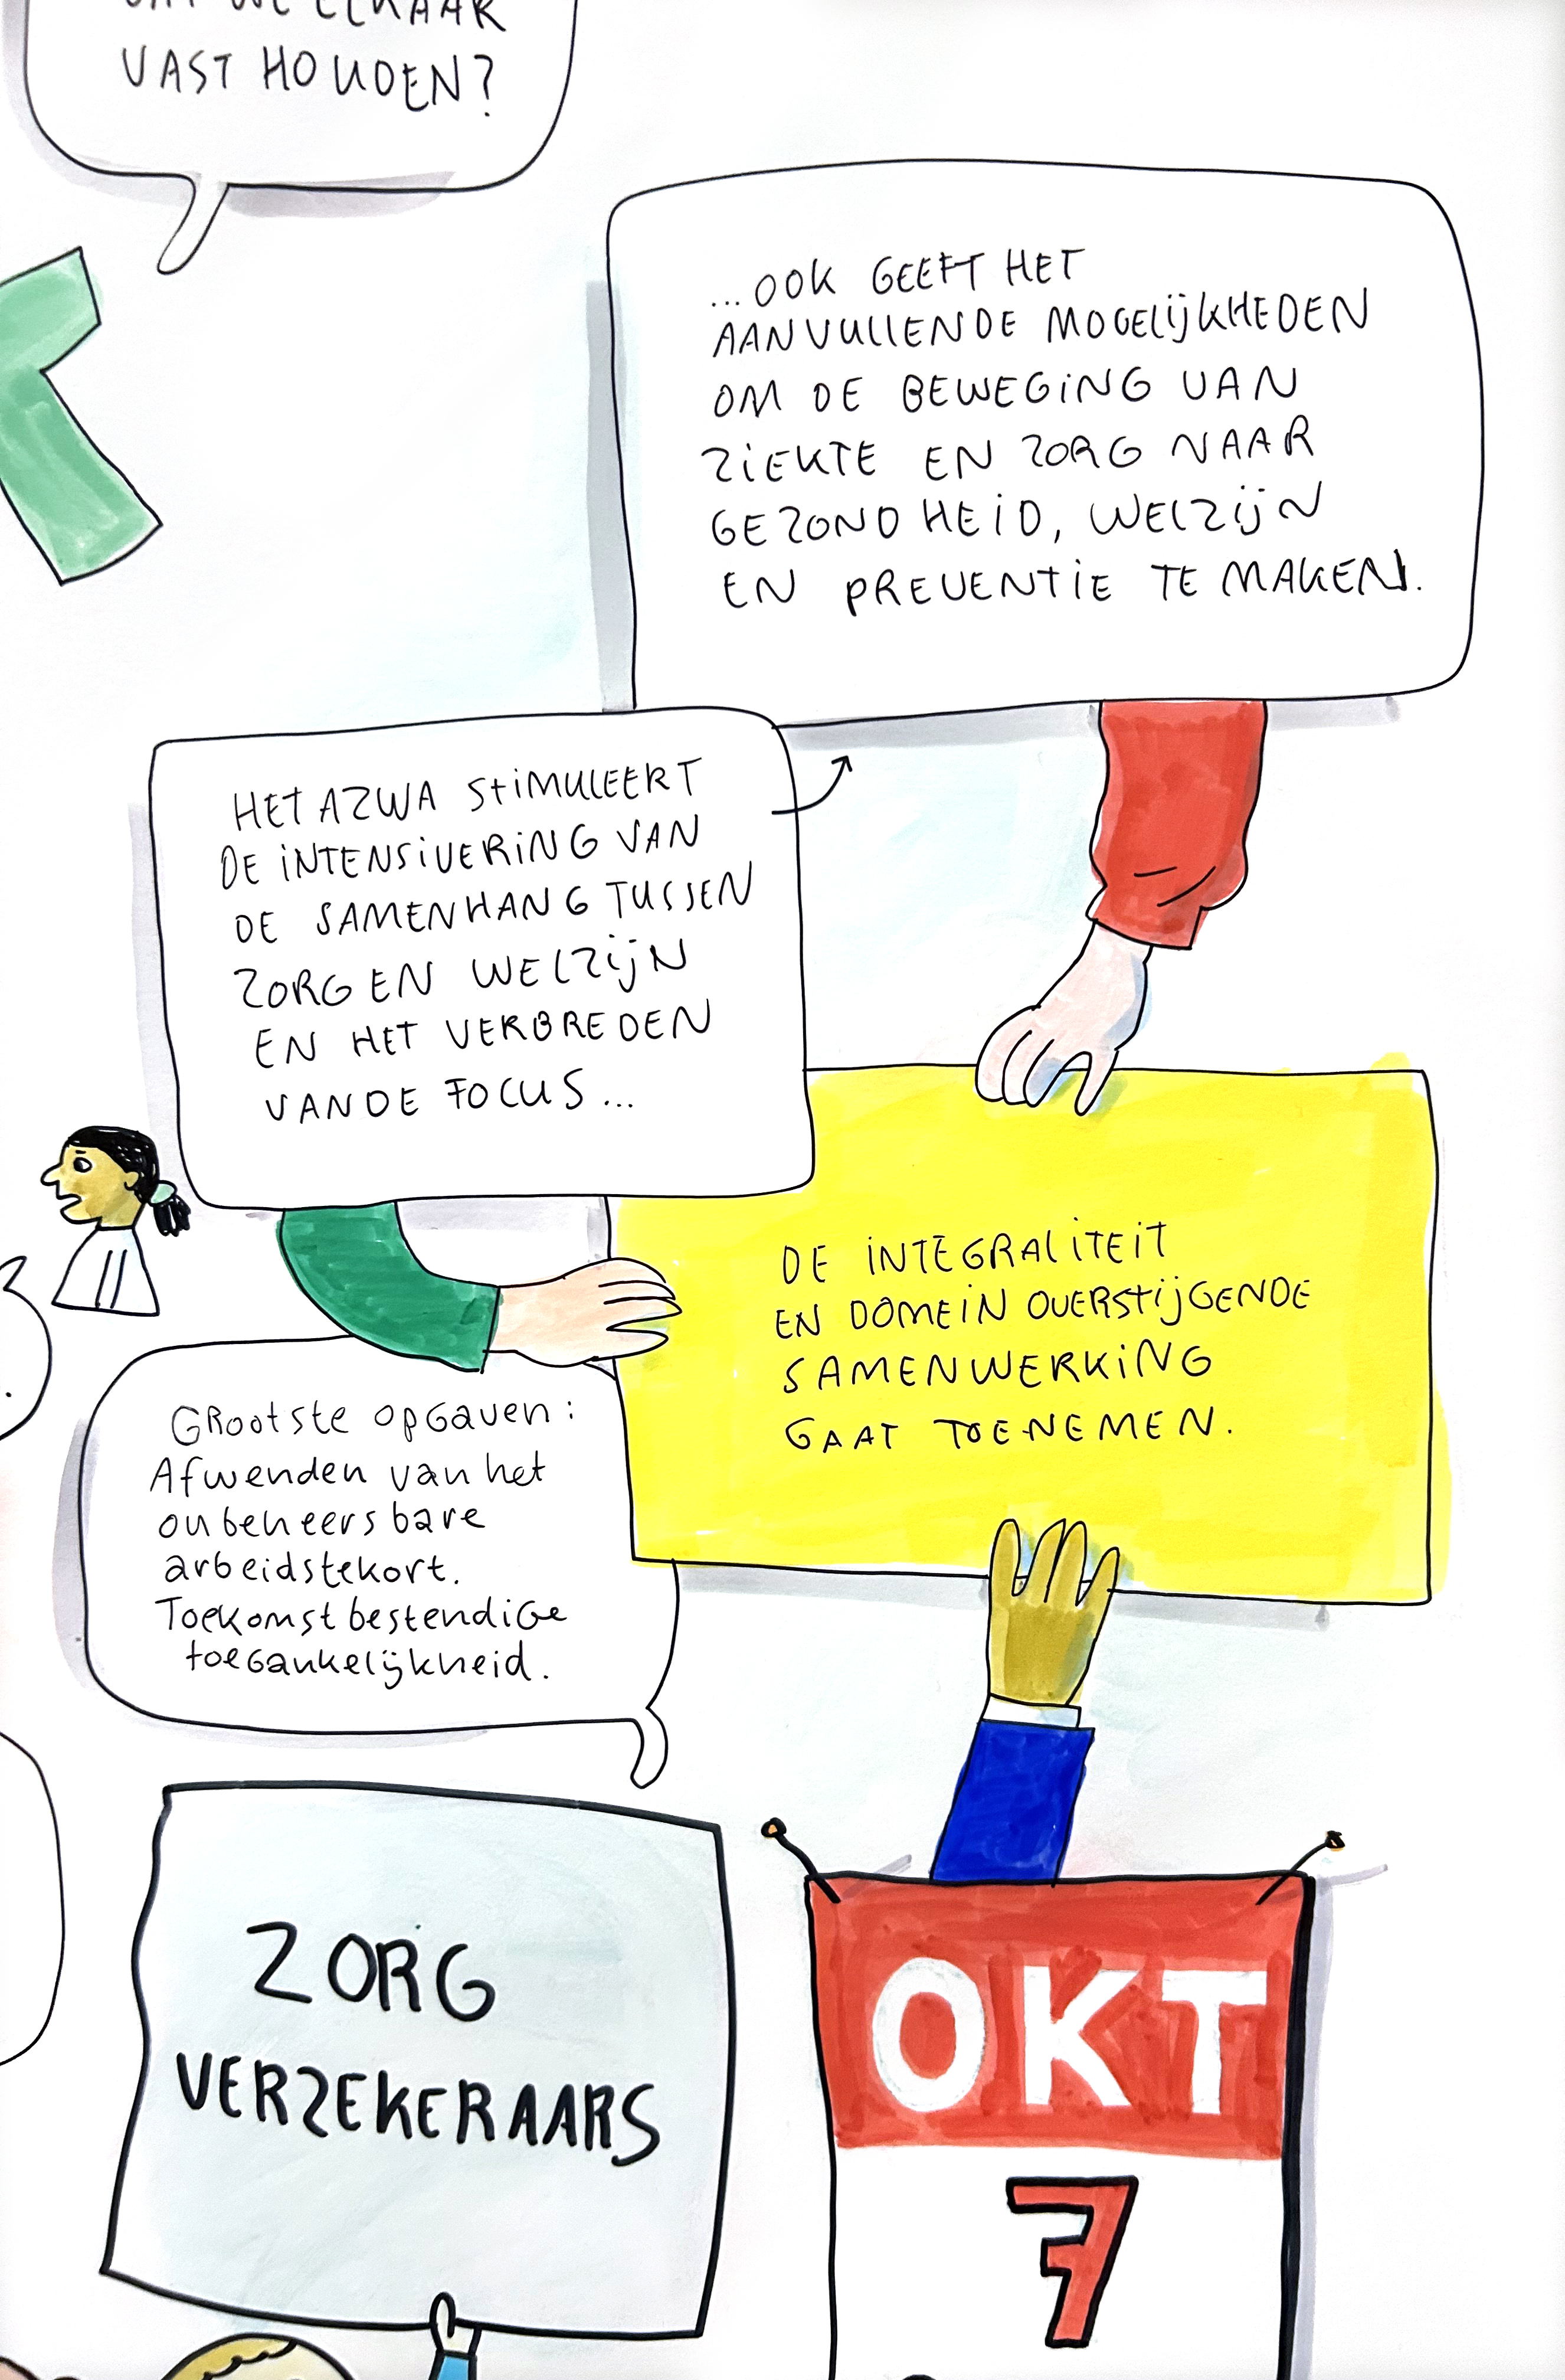 VAST HOUDEN?
...OOK GEEFT HET
AANVULLENDE MOGELIJKHEDEN
OM DE BEWEGING VAN
ZIEKTE EN ZORG NAAR
GEZONDHEID, WELZIJN
EN PREVENTIE TE MAKEN.
HET AZWA STIMULEERT
DE INTENSIVERING VAN
DE SAMENHANG TUSSEN
ZORG EN WELZIJN
EN HET VERBREDEN
VAN DE FOCUS...
DE INTEGRALITEIT
EN DOMEIN OVERSTIJGENDE
SAMENWERKING
GAAT TOENEMEN.
Grootste opgaven:
Afwenden van het
onbeheersbare
arbeidstekort.
Toekomstbestendige
toegankelijkheid.
ZORG
VERZEKERAARS
OKT
7